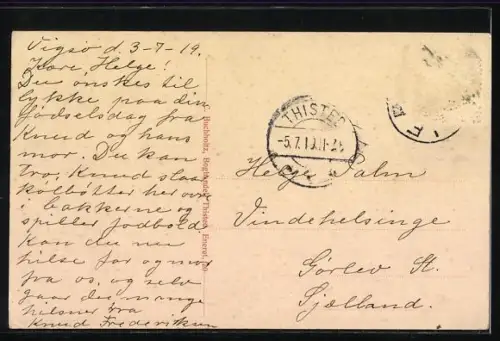 Vigsø d. 3-7-19.
Kære Helge!
Du ønskes til
lykke paa din
fødselsdag fra
Knud og hans
mor. Du kan
tro, Knud slaar
kolbøtter her ovre
i bakkerne og
spiller fodbold.
Kan du nu
hilse far og mor
fra os, og selv
gaar du mange
hilsner fra
Knud Frederiksen
THISTED
-5.7.19.11-2
Helge Palm
Vindehelsinge
Gørlev St.
Sjælland.